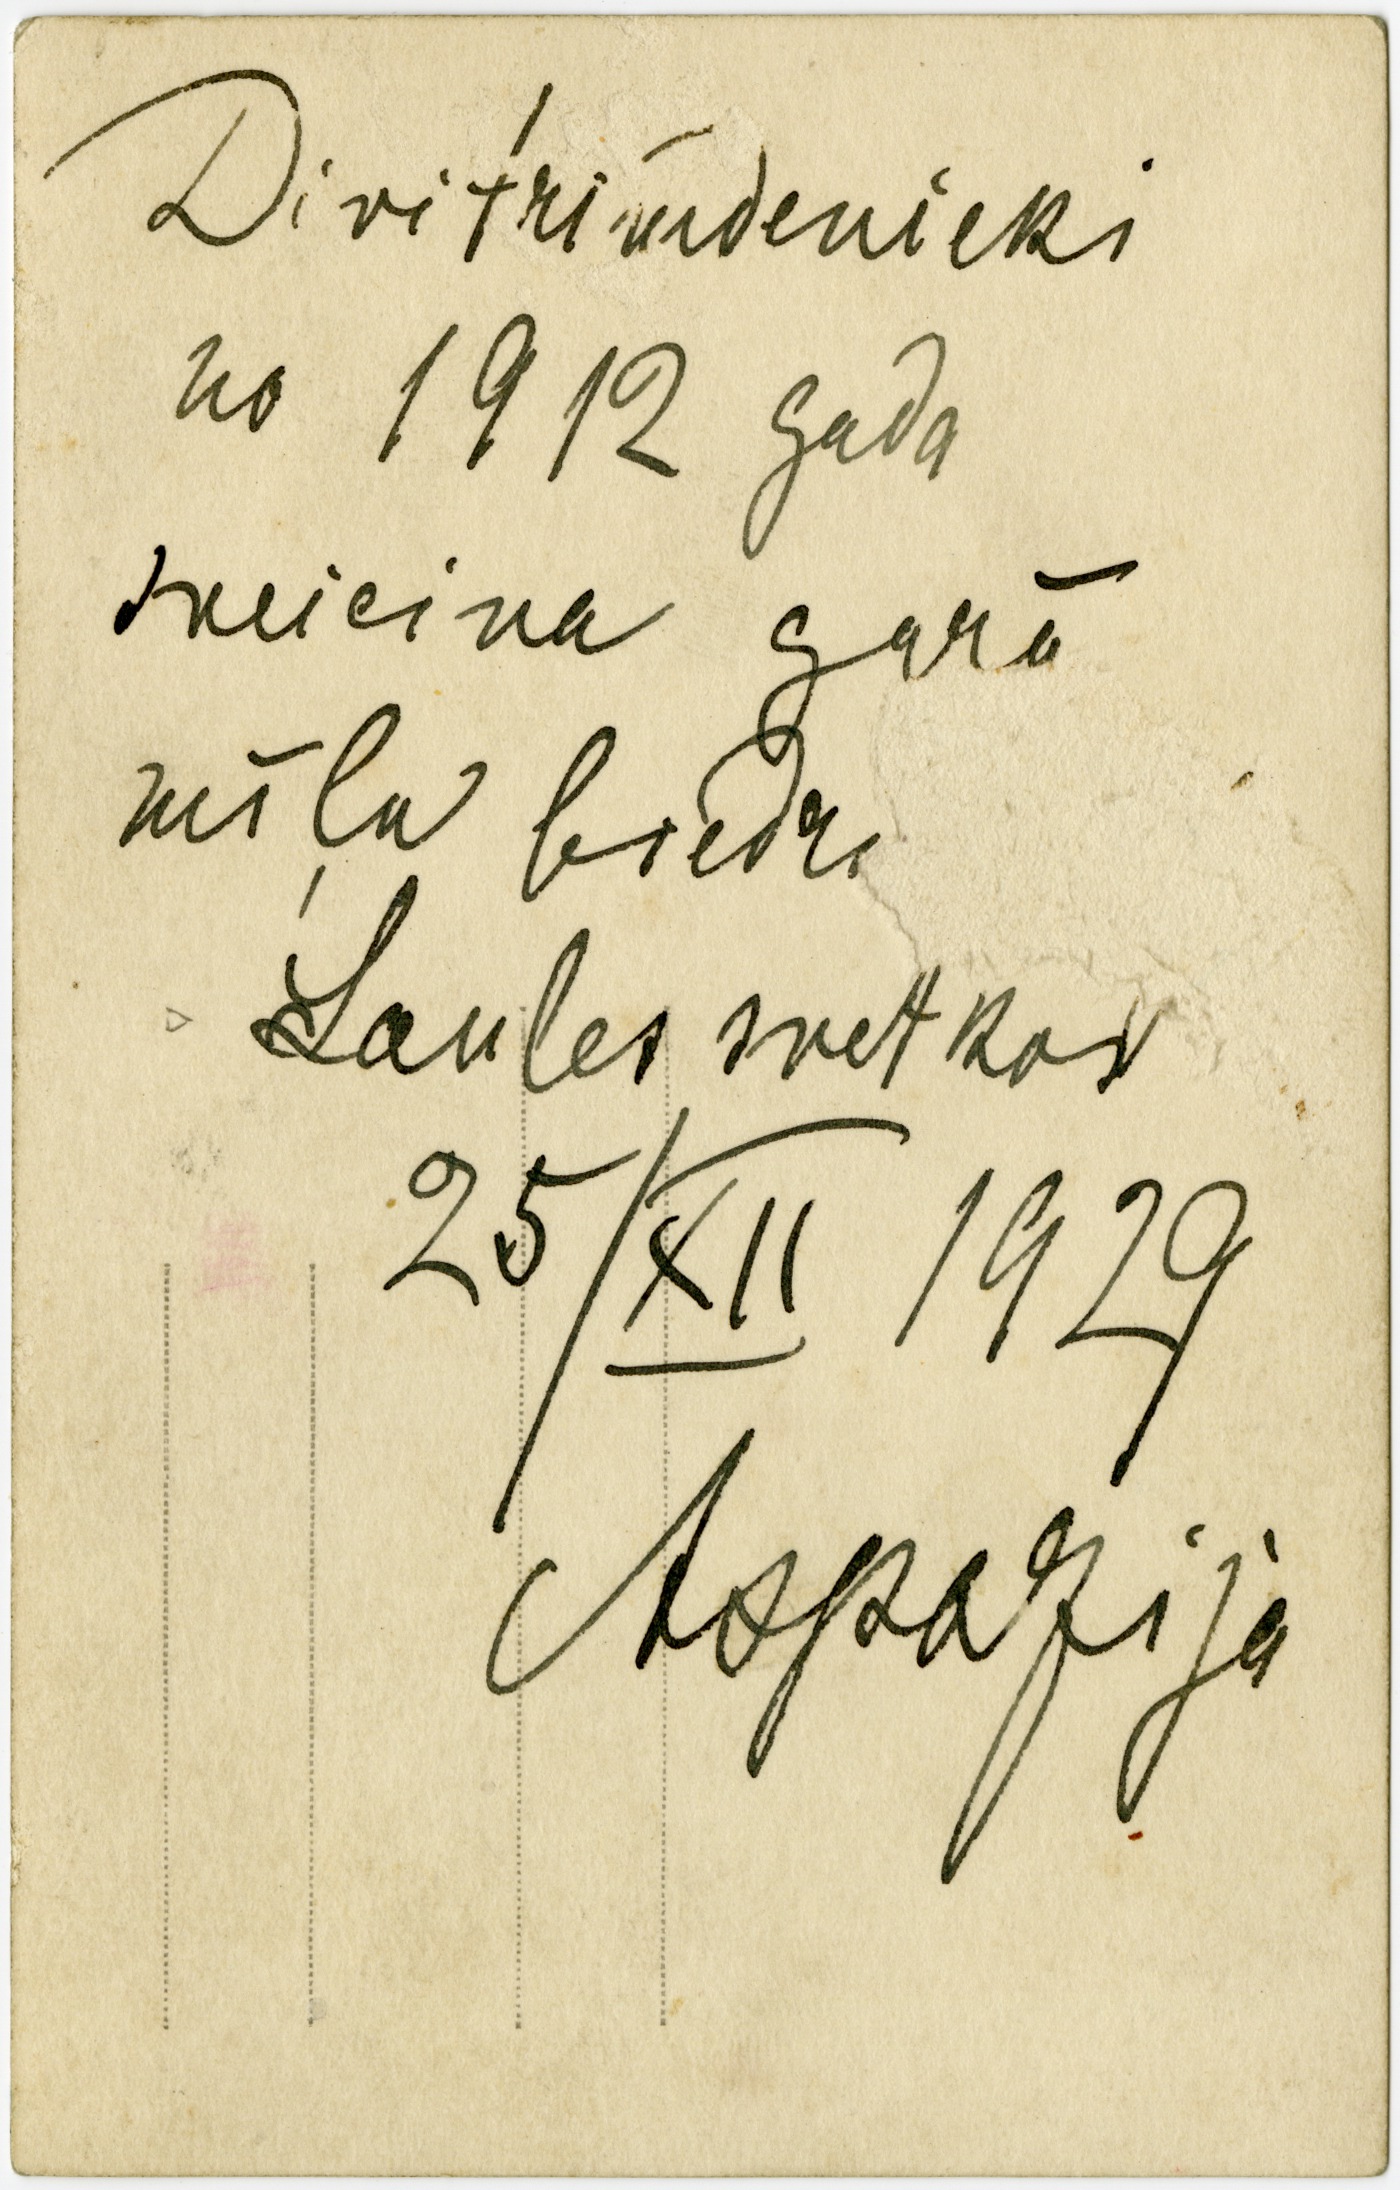 Divi trimdenieki
no 1912 gada
sveicina garā
mīļu biedri
Saules svētkos
25/XII 1929
Aspazija